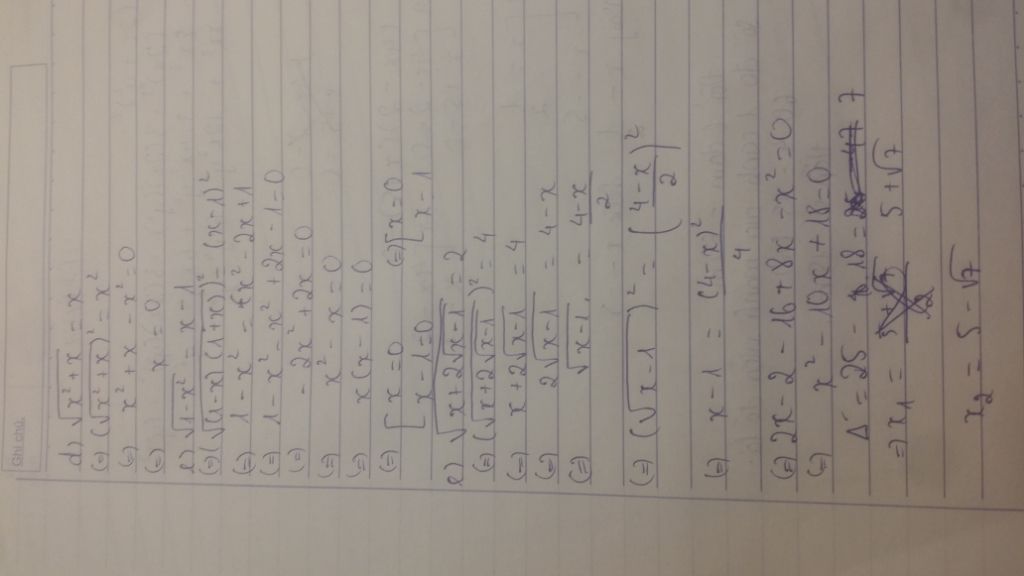 Ghi chú
d) √(x² + x) = x
(=) (√(x² + x))² = x²
(=) x² + x - x² = 0
(=) x = 0
e) √(1 - x²) = x - 1
(=) (√((1 - x)(1 + x)))² = (x - 1)²
(=) 1 - x² = x² - 2x + 1
(=) 1 - x² - x² + 2x - 1 = 0
(=) - 2x² + 2x = 0
(=) x² - x = 0
(=) x(x - 1) = 0
(=) [ x = 0 (=) [ x = 0
[ x - 1 = 0 [ x - 1
e) √(x + 2√(x - 1)) = 2
(=) (√(x + 2√(x - 1)))² = 4
(=) x + 2√(x - 1) = 4
(=) 2√(x - 1) = 4 - x
(=) √(x - 1) = (4 - x)/2
(=) (√(x - 1))² = ((4 - x)/2)²
(=) x - 1 = (4 - x)²/4
(=) 2x - 2 - 16 + 8x - x² = 0
(=) x² - 10x + 18 = 0
Δ' = 25 - 18 = 7
=) x₁ = 5 + √7
x₂ = 5 - √7